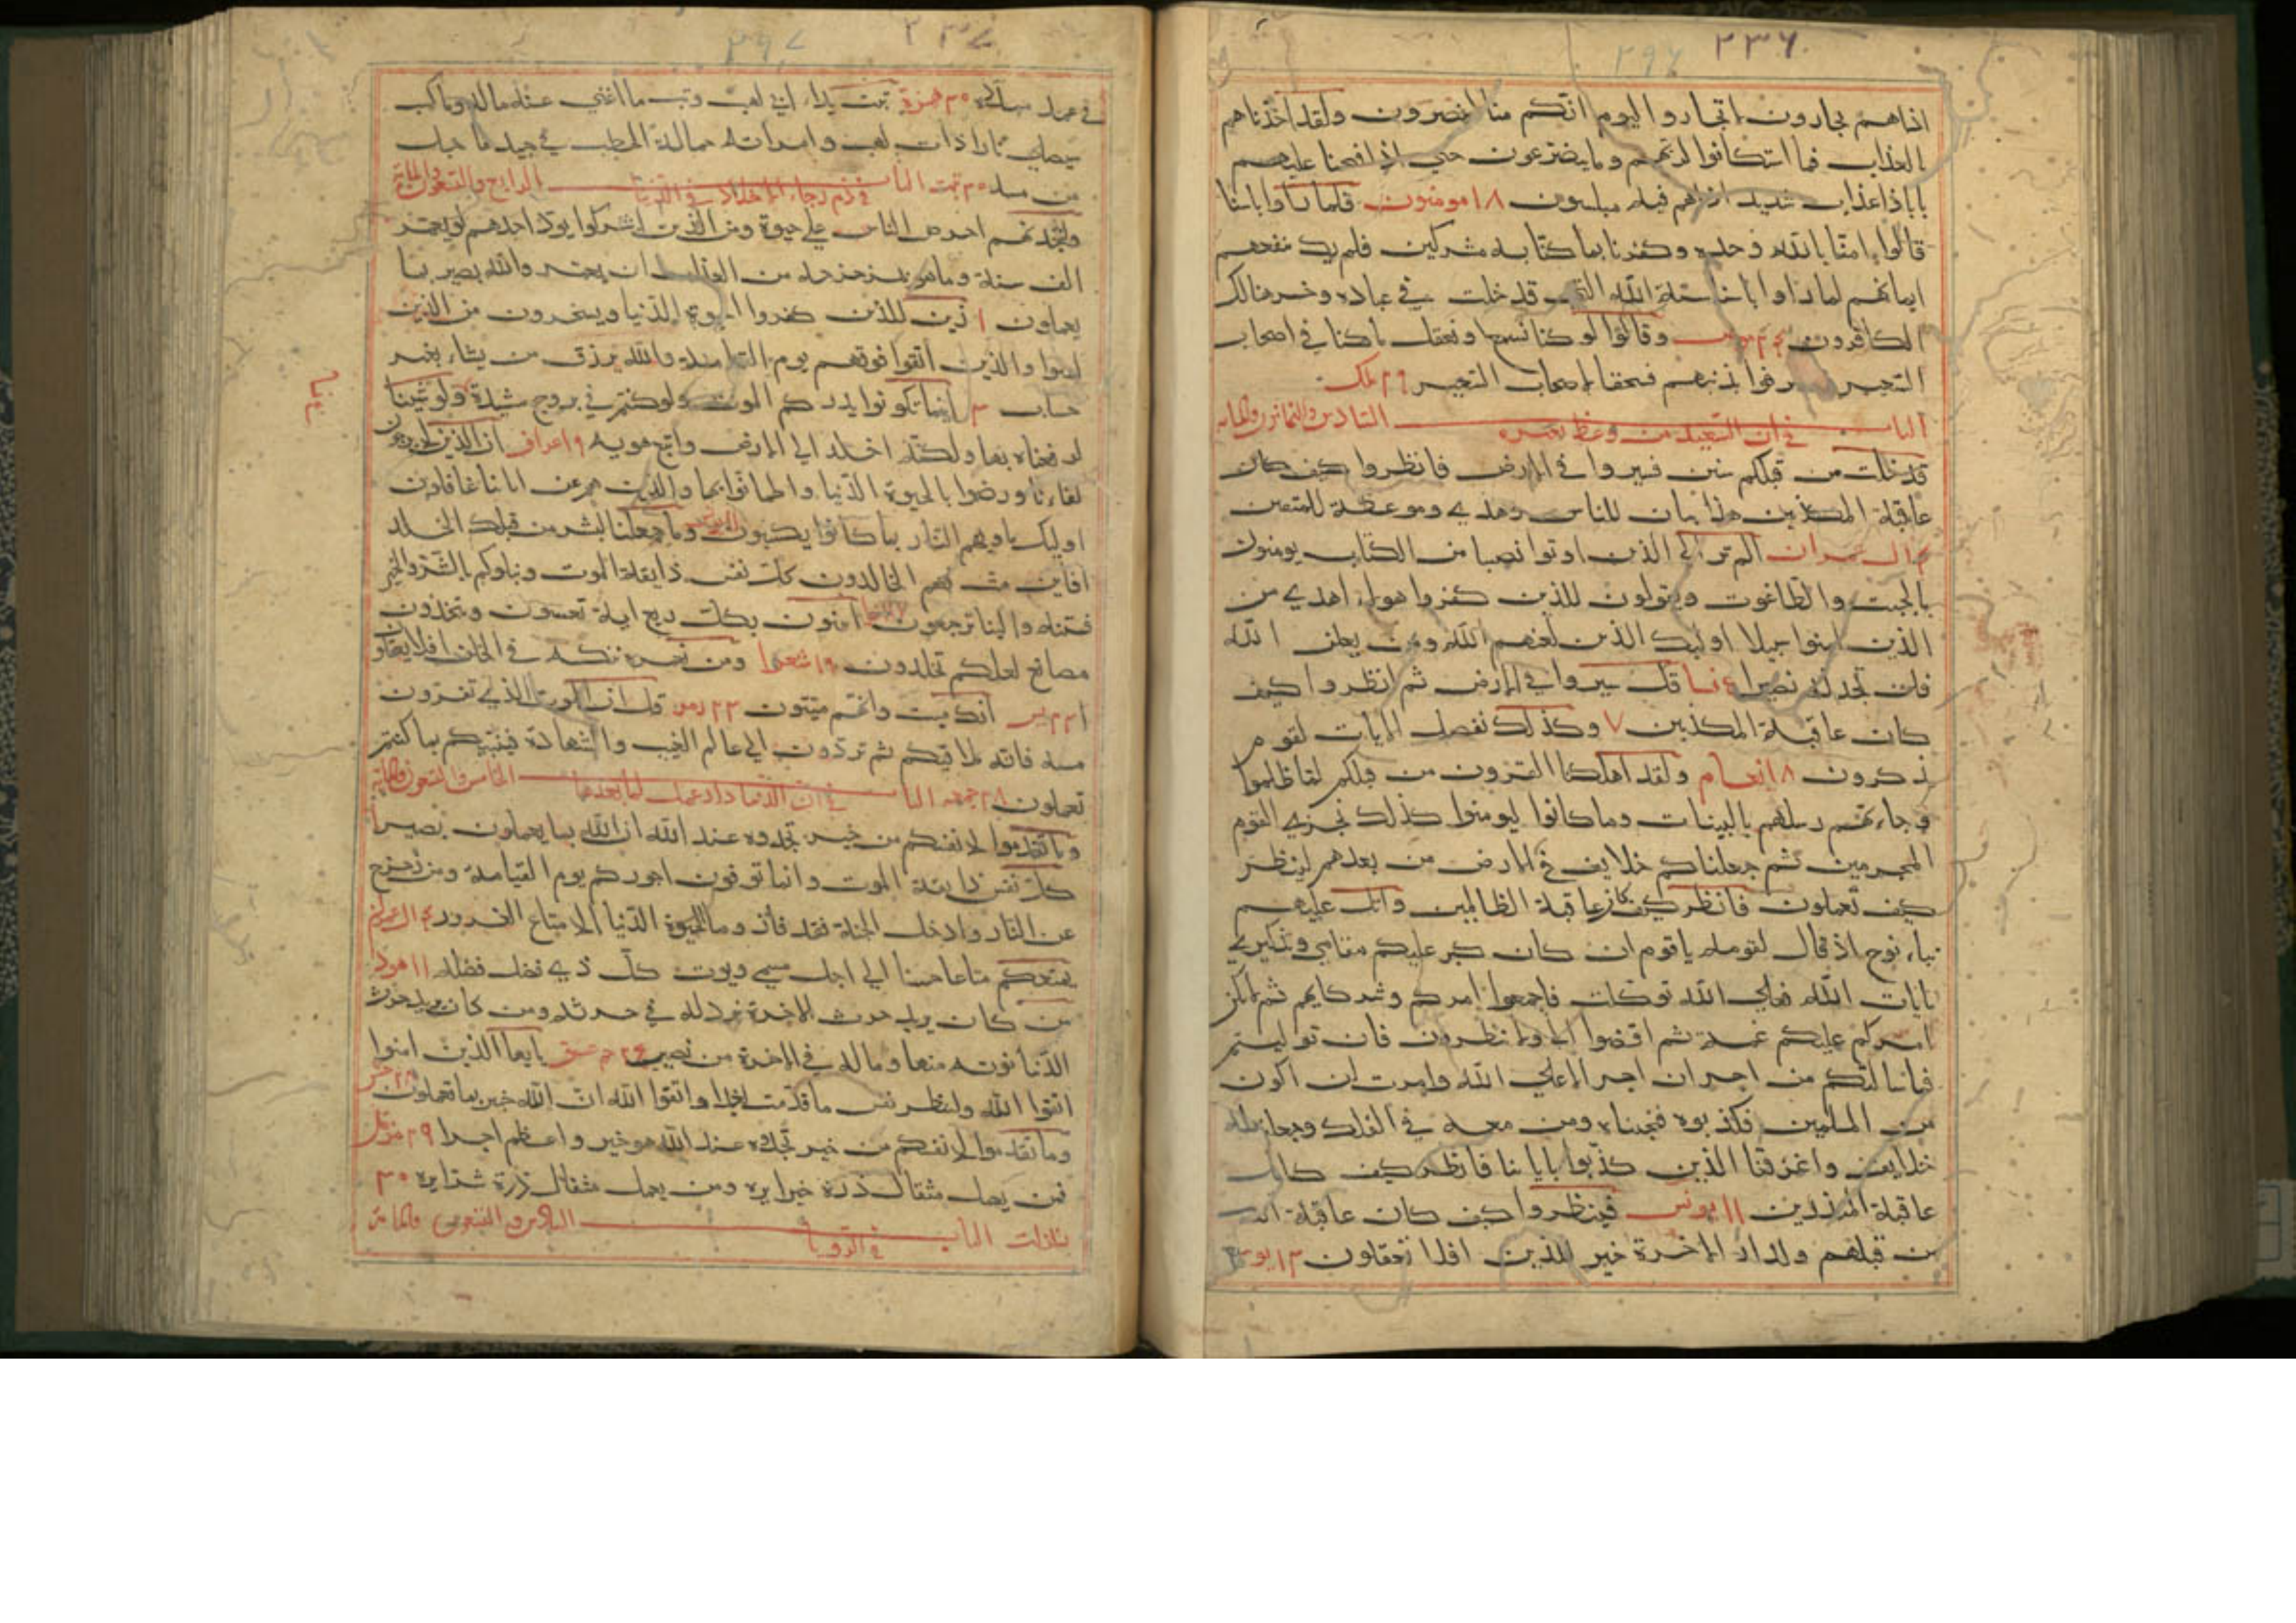 ٢٣٦
٢٩٦
اذا هم يجارون لا تجاروا اليوم انكم منا لا تنصرون ولقد اخذناهم
العذاب فما استكانوا لربهم وما يتضرعون حتى اذا فتحنا عليهم
بابا ذا عذاب شديد اذا هم فيه مبلسون ١٨ مومنون فلما راوا باسنا
قالوا امنا بالله وحده وكفرنا بما كنا به مشركين فلم يك ينفعهم
ايمانهم لما راوا باسنا سنة الله التي قد خلت في عباده وخسر هنالك
الكافرون ٢٤ مومن وقالوا لو كنا نسمع او نعقل ما كنا في اصحاب
السعير فاعترفوا بذنبهم فسحقا لاصحاب السعير ٢٩ ملك
الباب السادس والثمانون والمايه
في ان السعيد من وعظ بغيره
قد خلت من قبلكم سنن فسيروا في الارض فانظروا كيف كان
عاقبة المكذبين هذا بيان للناس وهدى وموعظة للمتقين
٤ ال عمران الم تر الى الذين اوتوا نصيبا من الكتاب يومنون
بالجبت والطاغوت ويقولون للذين كفروا هولاء اهدى من
الذين امنوا سبيلا اوليك الذين لعنهم الله ومن يلعن الله
فلن تجد له نصيرا ٤ نسا قل سيروا في الارض ثم انظروا كيف
كان عاقبة المكذبين ٧ وكذلك نفصل الايات لقوم
يذكرون ٨ انعام ولقد اهلكنا القرون من قبلكم لما ظلموا
وجاءتهم رسلهم بالبينات وما كانوا ليومنوا كذلك نجزي القوم
المجرمين ثم جعلناكم خلايف في الارض من بعدهم لننظر
كيف تعملون فانظر كيف كان عاقبة الظالمين واتل عليهم
نباء نوح اذ قال لقومه يا قوم ان كان كبر عليكم مقامي وتذكيري
بايات الله فعلى الله توكلت فاجمعوا امركم وشركايكم ثم لا يكن
امركم عليكم غمة ثم اقضوا الي ولا تنظرون فان توليتم
فما سالتكم من اجر ان اجري الا على الله وامرت ان اكون
من المسلمين فكذبوه فنجيناه ومن معه في الفلك وجعلناهم
خلايف واغرقنا الذين كذبوا باياتنا فانظر كيف كان
عاقبة المنذرين ١١ يونس فينظروا كيف كان عاقبة الذين
من قبلهم ولدار الاخرة خير للذين افلا تعقلون ١٣ يوسف
٢٣٧
٢٩٧
في عمد ممددة ٣٠ همزة تبت يدا ابي لهب وتب ما اغنى عنه ماله وما كسب
سيصلى نارا ذات لهب وامراته حمالة الحطب في جيدها حبل
من مسد ٣٠ تبت الباب الرابع والتسعون والمايه
في ذم رجاء الاخلاد في الدنيا
ولتجدنهم احرص الناس على حيوة ومن الذين اشركوا يود احدهم لو يعمر
الف سنة وما هو بمزحزحه من العذاب ان يعمر والله بصير بما
يعملون ١ زين للذين كفروا الحيوة الدنيا ويسخرون من الذين
امنوا والذين اتقوا فوقهم يوم القيامة والله يرزق من يشاء بغير
حساب ٢ اينما تكونوا يدرككم الموت ولو كنتم في بروج مشيدة ولو شينا
لرفعناه بها ولكنه اخلد الى الارض واتبع هويه ٩ اعراف ان الذين لا يرجون
لقاءنا ورضوا بالحيوة الدنيا واطمانوا بها والذين هم عن اياتنا غافلون
اوليك ماويهم النار بما كانوا يكسبون ١١ يونس وما جعلنا لبشر من قبلك الخلد
افاين مت فهم الخالدون كل نفس ذايقة الموت ونبلوكم بالشر والخير
فتنه والينا ترجعون ١٧ انبيا اتبنون بكل ريع اية تعبثون وتتخذون
مصانع لعلكم تخلدون ١٩ شعرا ومن نعمره ننكسه في الخلق افلا يعقلون
٢٣ يس انك ميت وانهم ميتون ٢٣ زمر قل ان الموت الذي تفرون
منه فانه ملاقيكم ثم تردون الى عالم الغيب والشهادة فينبيكم بما كنتم
تعملون ٢٨ جمعه الباب الخامس والتسعون والمايه
في ان الدنيا دار عمل لما بعدها
وما تقدموا لانفسكم من خير تجدوه عند الله ان الله بما يعملون بصير ١
كل نفس ذايقة الموت وانما توفون اجوركم يوم القيامة ومن زحزح
عن النار وادخل الجنة فقد فاز وما الحيوة الدنيا الا متاع الغرور ٤ ال عمران
يمتعكم متاعا حسنا الى اجل مسمى ويوت كل ذي فضل فضله ١١ هود
من كان يريد حرث الاخرة نزد له في حرثه ومن كان يريد حرث
الدنيا نوته منها وما له في الاخرة من نصيب ٢٥ حمعسق يايها الذين امنوا
اتقوا الله ولتنظر نفس ما قدمت لغد واتقوا الله ان الله خبير بما تعملون ٢٨ حشر
وما تقدموا لانفسكم من خير تجدوه عند الله هو خير واعظم اجرا ٢٩ مزمل
فمن يعمل مثقال ذرة خيرا يره ومن يعمل مثقال ذرة شرا يره ٣٠
زلزلت الباب السادس والتسعون والمايه
في الرويا